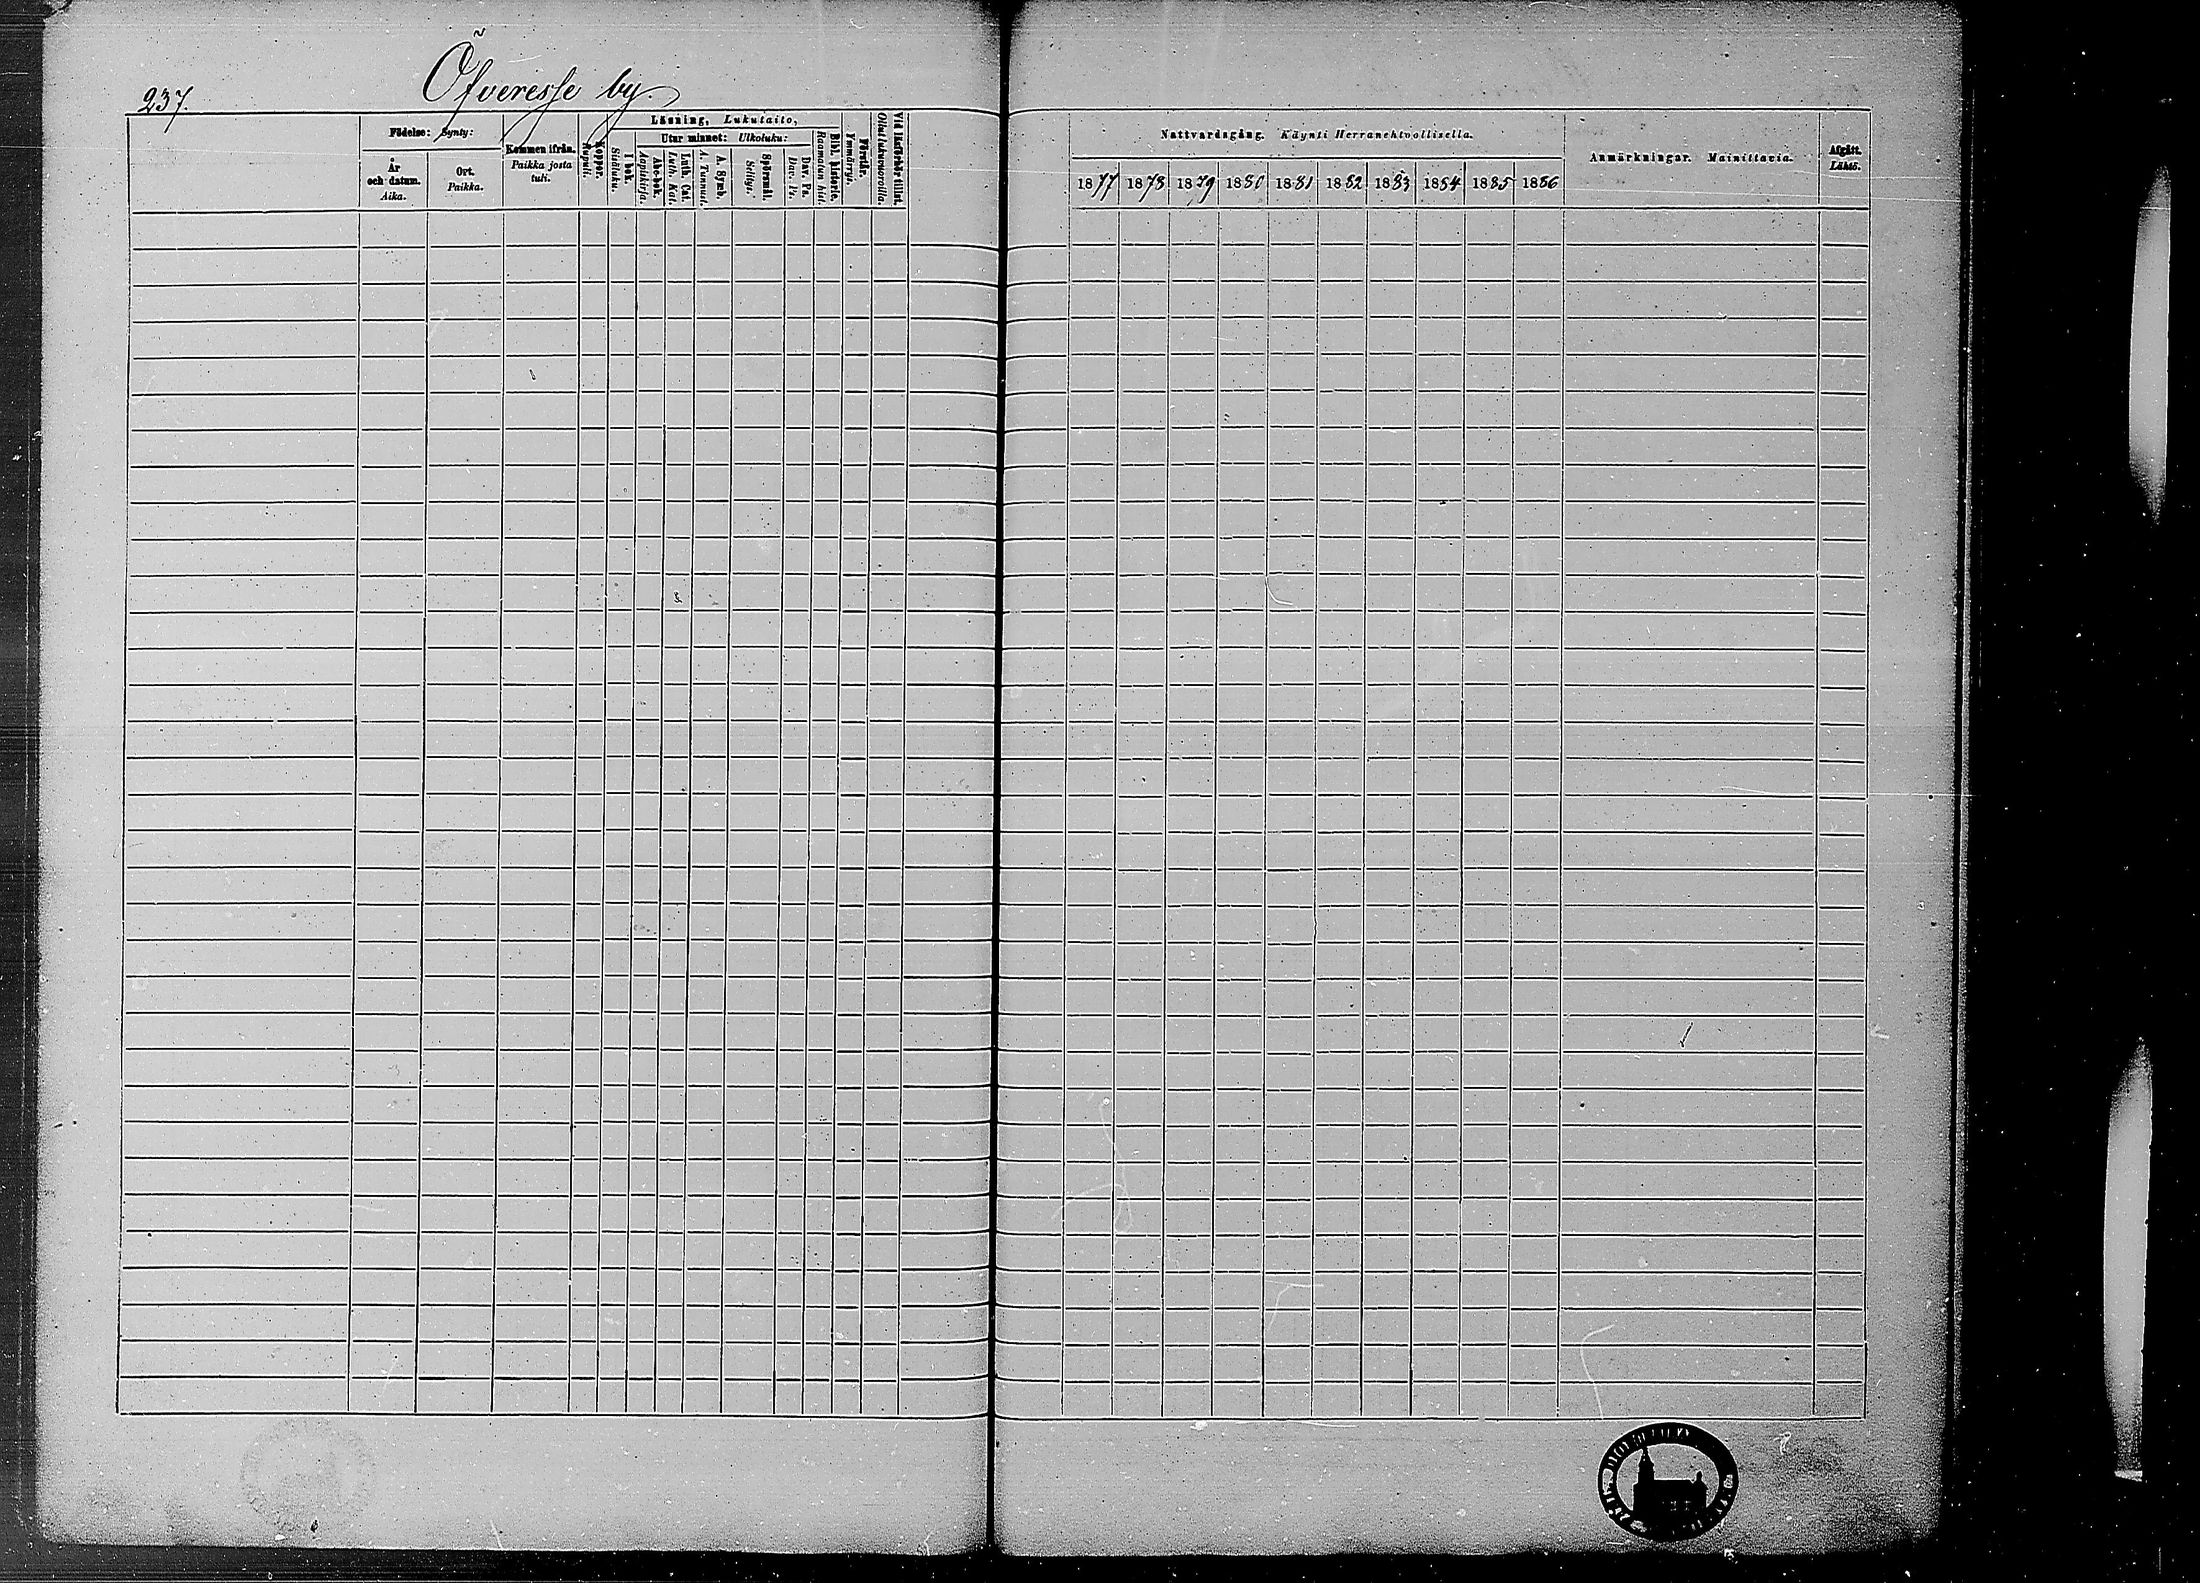 237.
Öfveresse by.
Födelse: Synty:
År
och datum.
Aika.
Ort.
Paikka.
Kommen ifrån.
Paikka josta
tuli.
Koppor.
Rupuli.
Läsning, Lukutaito,
I bok.
Sisäluku.
Utur minnet: Ulkoluku:
Abc-bok.
Aapiskirja.
Luth. Cat.
Luth. Kat.
A. Symb.
A. Tunnust.
Spörsmål.
Selitys.
Dav. Ps.
Dav. Ps.
Bibl. historie.
Raamatun hist.
Förstår.
Ymmärrys.
Vid läsförhör tillst.
Ollut lukuvuoroilla.
Nattvardsgång. Käynti Herranehtoollisella.
1877 1878 1879 1880 1881 1882 1883 1884 1885 1886
Anmärkningar. Mainittavia.
Afgått.
Lähtö.